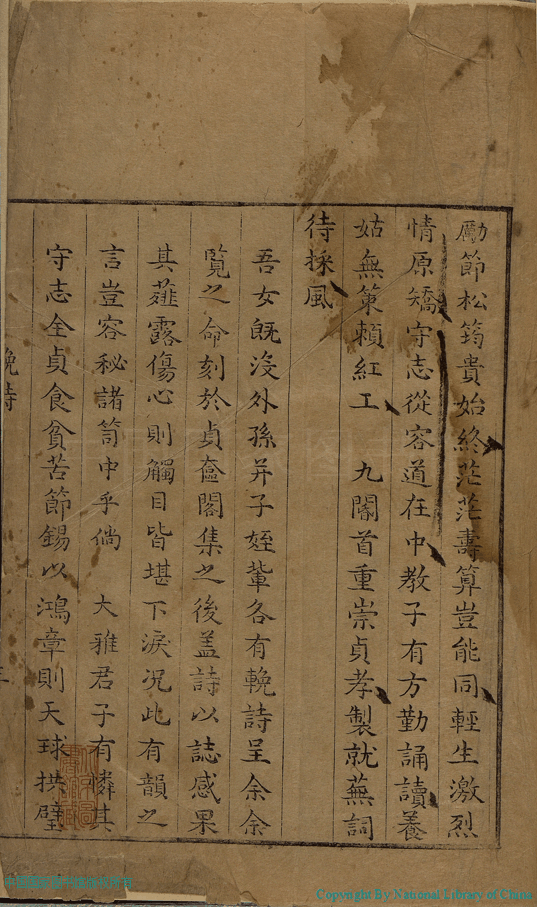 勵節松筠貴始終茫茫壽算豈能同輕生激烈
情原矯守志從容道在中教子有方勤誦讀養
姑無策賴紅工　九閽首重崇貞孝製就蕪詞
待採風
吾女既沒外孫并子姪輩各有輓詩呈余余
覽之命刻於貞奩閣集之後盖詩以誌感果
其薤露傷心則觸目皆堪下淚况此有韻之
言豈容秘諸笥中乎倘　大雅君子有憐其
守志全貞食貧苦節錫以鴻章則天球拱璧
輓詩
Copyright By National Library of China